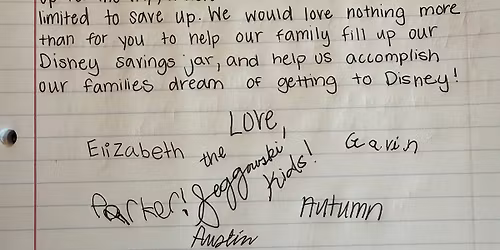 limited to save up. We would love nothing more
than for you to help our family fill up our
Disney savings jar, and help us accomplish
our families dream of getting to Disney!
Love,
Elizabeth
the
Gavin
Parker!
Kids!
Autumn
Austin